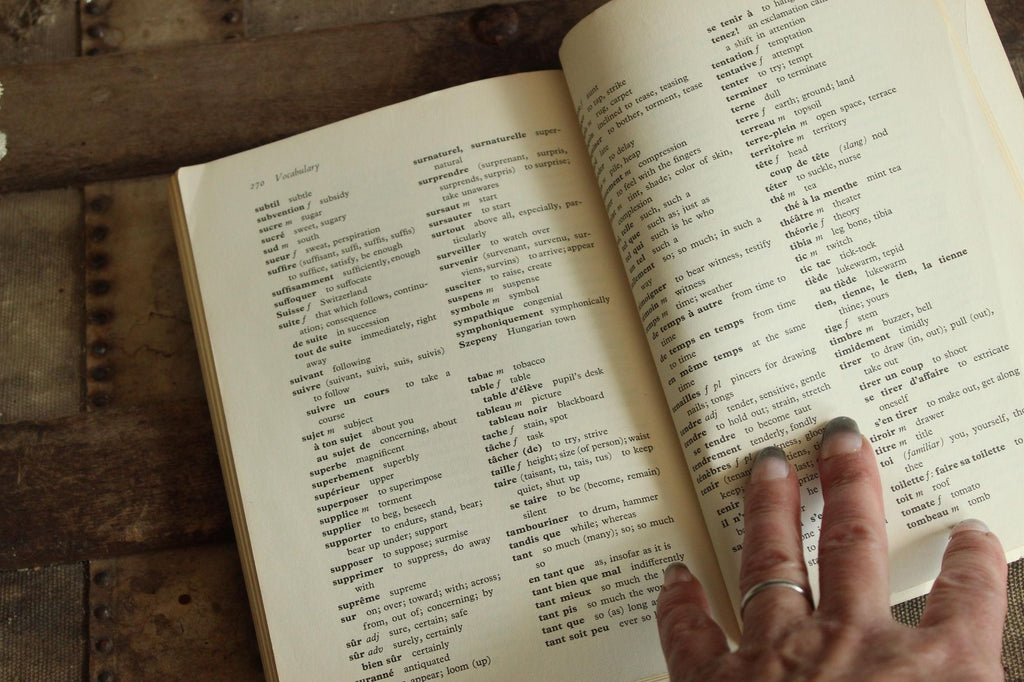 270 Vocabulary
subtil subtle
subvention f subsidy
sucre m sugar
sucré sweet, sugary
sud m south
sueur f sweat, perspiration
suffire (suffisant, suffi, suffis, suffis)
to suffice, satisfy, be enough
suffisamment sufficiently, enough
suffoquer to suffocate
Suisse f Switzerland
suite f that which follows, continu-
ation; consequence
de suite in succession
tout de suite immediately, right
away
suivant following
suivre (suivant, suivi, suis, suivis)
to follow
suivre un cours to take a
course
sujet m subject
à ton sujet about you
au sujet de concerning, about
superbe magnificent
superbement superbly
supérieur upper
superposer to superimpose
supplice m torment
supplier to beg, beseech
supporter to endure, stand, bear;
bear up under; support
supposer to suppose; surmise
supprimer to suppress, do away
with
suprême supreme
sur on; over; toward; with; across;
from, out of; concerning; by
sûr adj sure, certain; safe
sûr adv surely, certainly
bien sûr certainly
suranné antiquated
appear; loom (up)
surnaturel, surnaturelle super-
natural
surprendre (surprenant, surpris,
surprends, surpris) to surprise;
take unawares
sursaut m start
sursauter to start
surtout above all, especially, par-
ticularly
surveiller to watch over
survenir (survenant, survenu, sur-
viens, survins) to arrive; appear
susciter to raise, create
suspens m suspense
symbole m symbol
sympathique congenial
symphoniquement symphonically
Szepeny Hungarian town
tabac m tobacco
table f table
table d'élève pupil's desk
tableau m picture
tableau noir blackboard
tache f stain, spot
tâche f task
tâcher (de) to try, strive
taille f height; size (of person); waist
taire (taisant, tu, tais, tus) to keep
quiet, shut up
se taire to be (become, remain)
silent
tambouriner to drum, hammer
tandis que while; whereas
tant so much (many); so; so much
en tant que as, insofar as it is
tant bien que mal indifferently
tant mieux so much the
tant pis so much the wo
tant que so (as) long as
tant soit peu ever so
to tap, strike
rug, carpet
inclined to tease, teasing
to bother, torment, tease
to delay
pile, heap
compression
to feel with the fingers
tint, shade; color of skin,
complexion
such, such a
such as; just as
such is he who
such a
so; so much; in such a
way
to bear witness, testify
witness
time; weather
de temps à autre from time to
time
de temps en temps from time
to time
en même temps at the same
time
f pl pincers for drawing
nails; tongs
adj tender, sensitive, gentle
to hold out; strain, stretch
tendre to become taut
tenderly, fondly
ténèbres f pl
tenir
se tenir à
tenez! an exclamation
a shift in attention
tentation f temptation
tentative f attempt
tenter to try; tempt
terminer to terminate
terne dull
terre f earth; ground; land
terreau m topsoil
terre-plein m open space, terrace
territoire m territory
tête f head
coup de tête (slang) nod
téter to suckle, nurse
thé m tea
thé à la menthe mint tea
théâtre m theater
théorie f theory
tibia m leg bone, tibia
tic m twitch
tic tac tick-tock
tiède lukewarm, tepid
au tiède lukewarm
tien, tienne, le tien, la tienne
thine; yours
tige f stem
timbre m buzzer, bell
timidement timidly
tirer to draw (in, out); pull (out),
take out
tirer un coup to shoot
se tirer d'affaire to extricate
oneself
s'en tirer to make out, get along
tiroir m drawer
titre m title
toi (familiar) you, yourself,
thee
toilette f: faire sa toilette to
toit m roof
tomate f tomato
tombeau m tomb